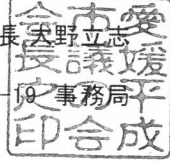 長 天野立志
-19 事務局
愛媛平成
市議会
会長之印